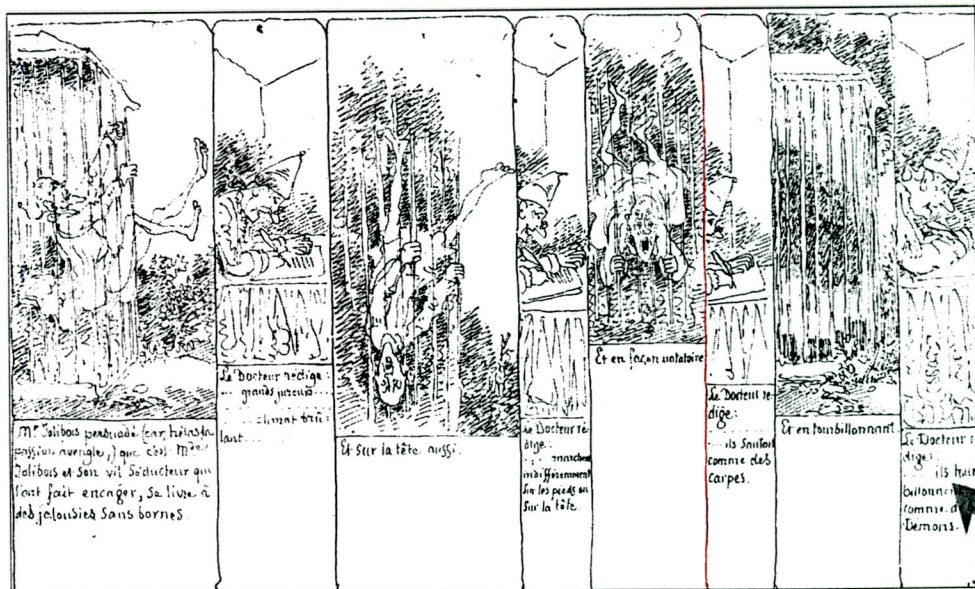 Mr Jolibois persuadé (car, hélas, la
passion aveugle,) que c'est Mde
Jolibois et son vil Séducteur qui
l'ont fait encager, se livre à
des jalousies sans bornes.
Le Docteur rédige:
... grands jureurs ...
... climat brû
lant ...
Et sur la tête aussi.
Le Docteur ré
dige:
... marchent
indifféremment
sur les pieds ou
sur la tête.
Et en façon natatoire
Le Docteur ré
dige:
... ils sautent
comme des
carpes.
Et en tourbillonnant.
Le Docteur ré
dige:
... ils
comme d
Démons.